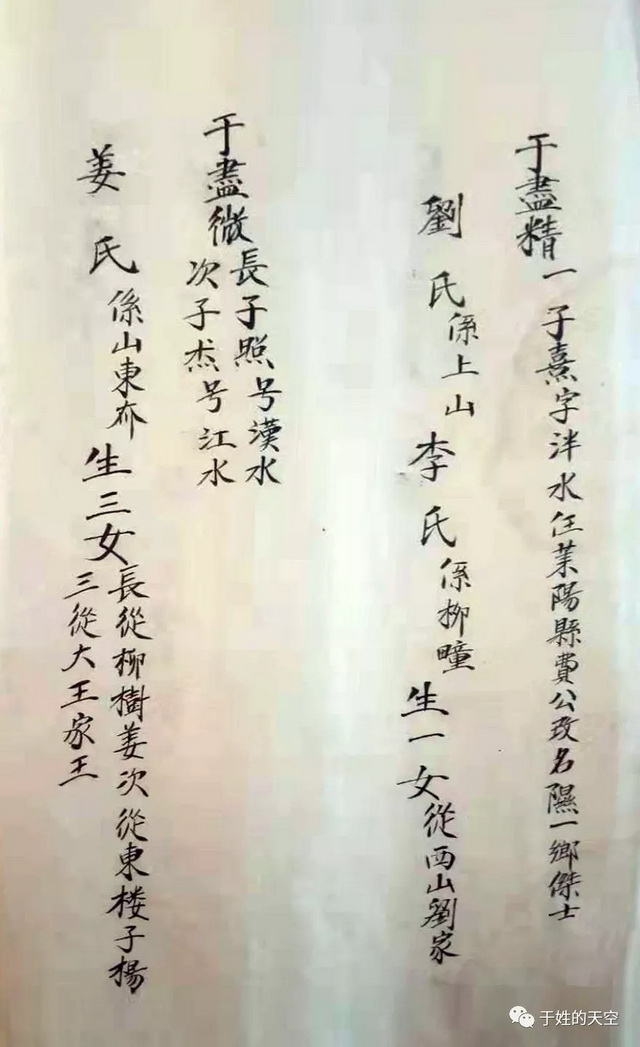 于盡精一子熹字泮水任莱陽縣費公改名隰一鄉傑士
劉氏係上山李氏係柳疃生一女從西山劉家
于盡微長子照号漢水
次子杰号江水
姜氏係山東夼生三女長從柳樹姜次從東楼子楊
三從大王家王
于姓的天空